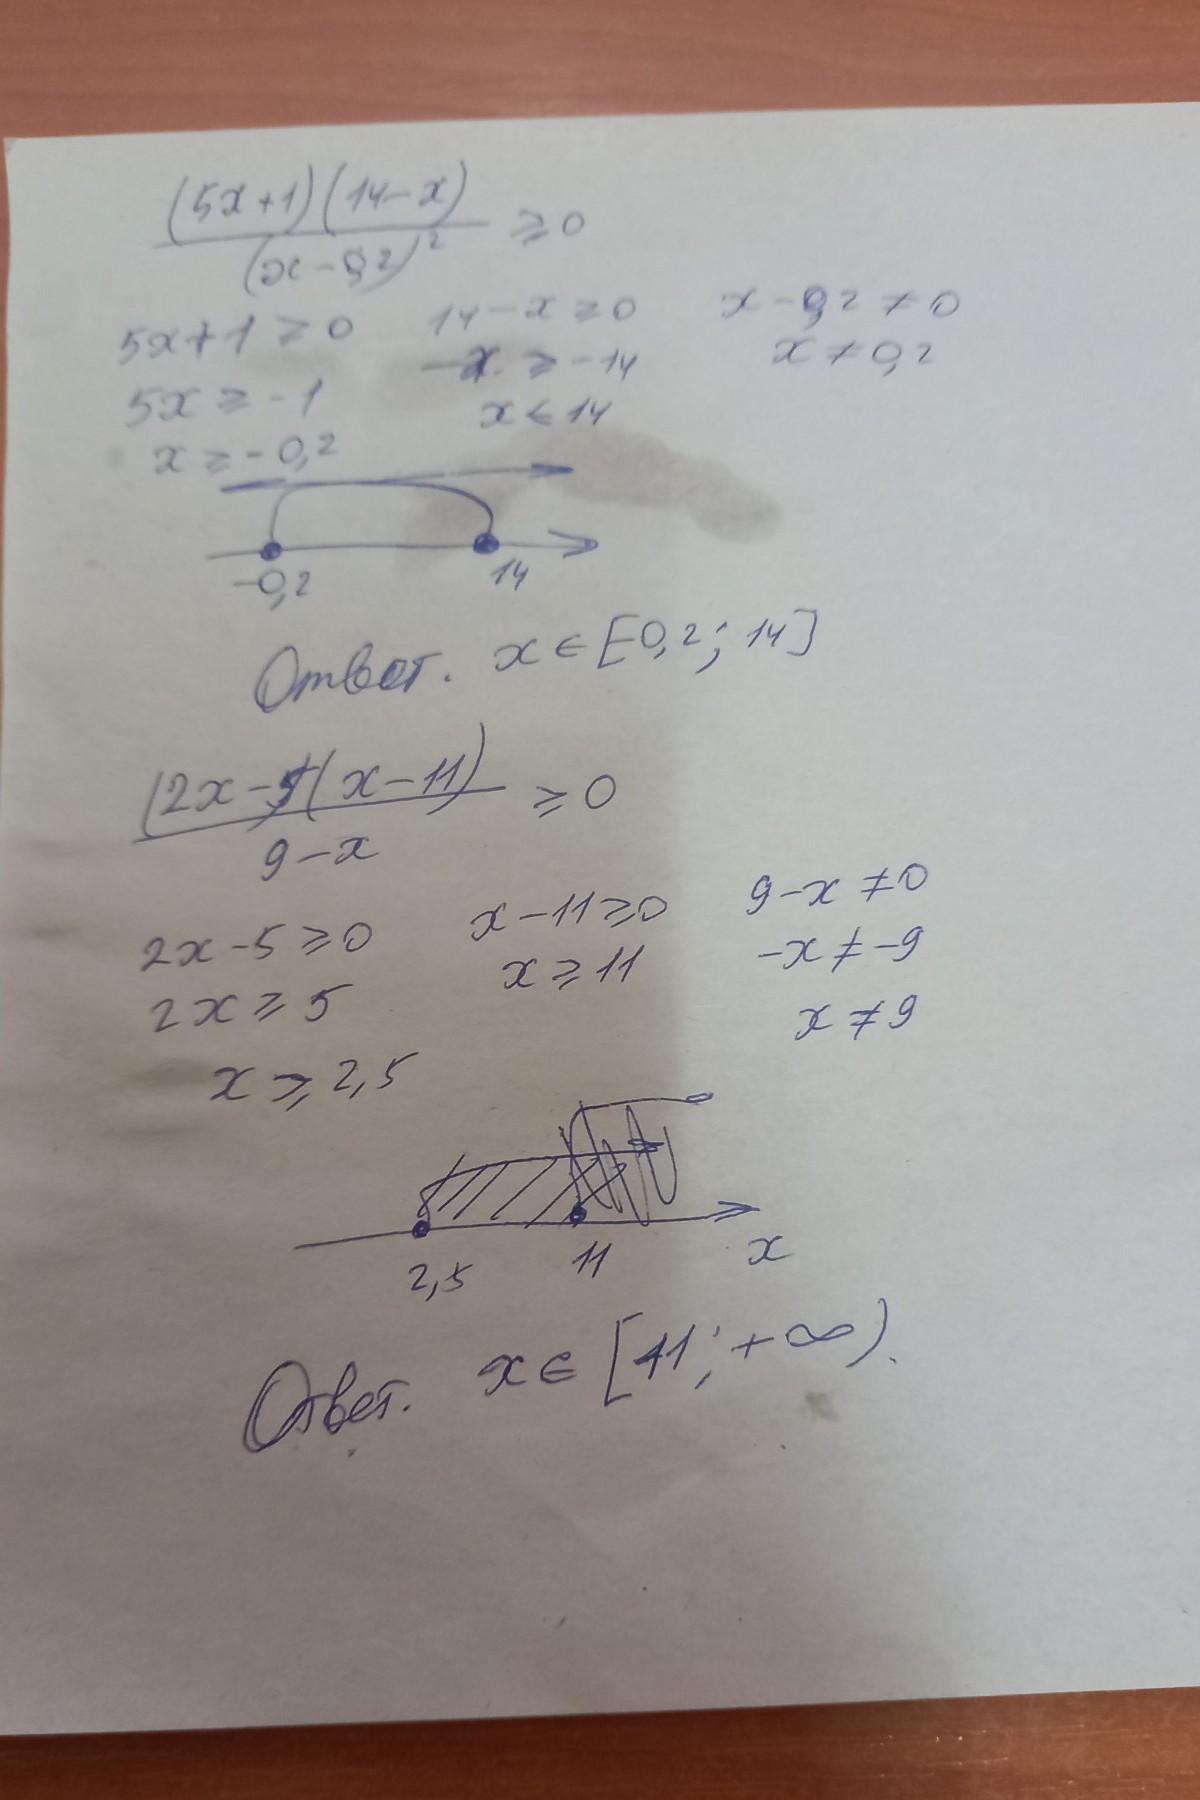 (5x+1)(14-x)
(x-0,2)² ≥0
5x+1≥0 14-x≥0 x-0,2≠0
5x≥-1 -x≥-14 x≠0,2
x≥-0,2 x≤14
-0,2 14
Ответ. x∈[-0,2; 14]
(2x-5)(x-11)
9-x ≥0
2x-5≥0 x-11≥0 9-x≠0
2x≥5 x≥11 -x≠-9
x≥2,5 x≠9
2,5 11 x
Ответ. x∈[11; +∞).